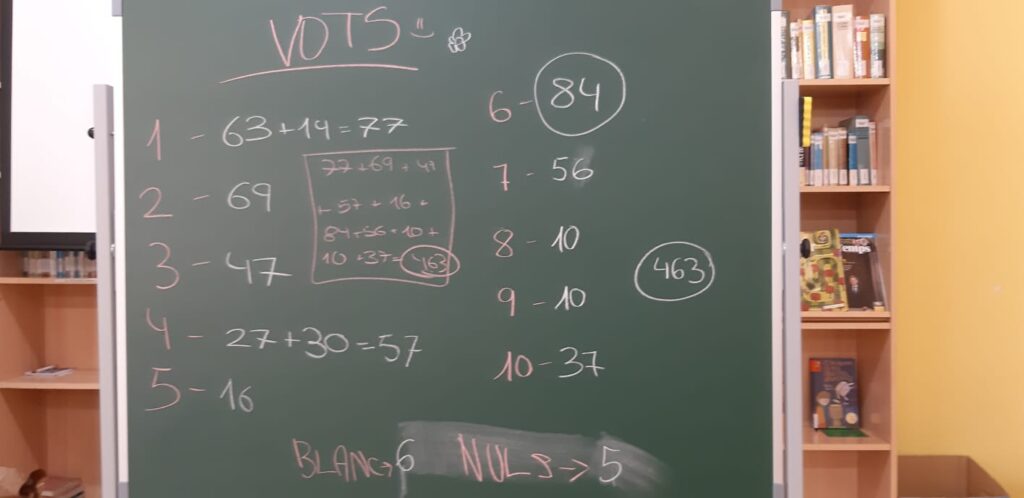 VOTS
1 - 63+14=77
2 - 69
3 - 47
4 - 27+30=57
5 - 16
77+69+47
+57+16+
84+56+10+
10+37=463
6 - 84
7 - 56
8 - 10
9 - 10
10 - 37
463
BLANC→6 NULS→5